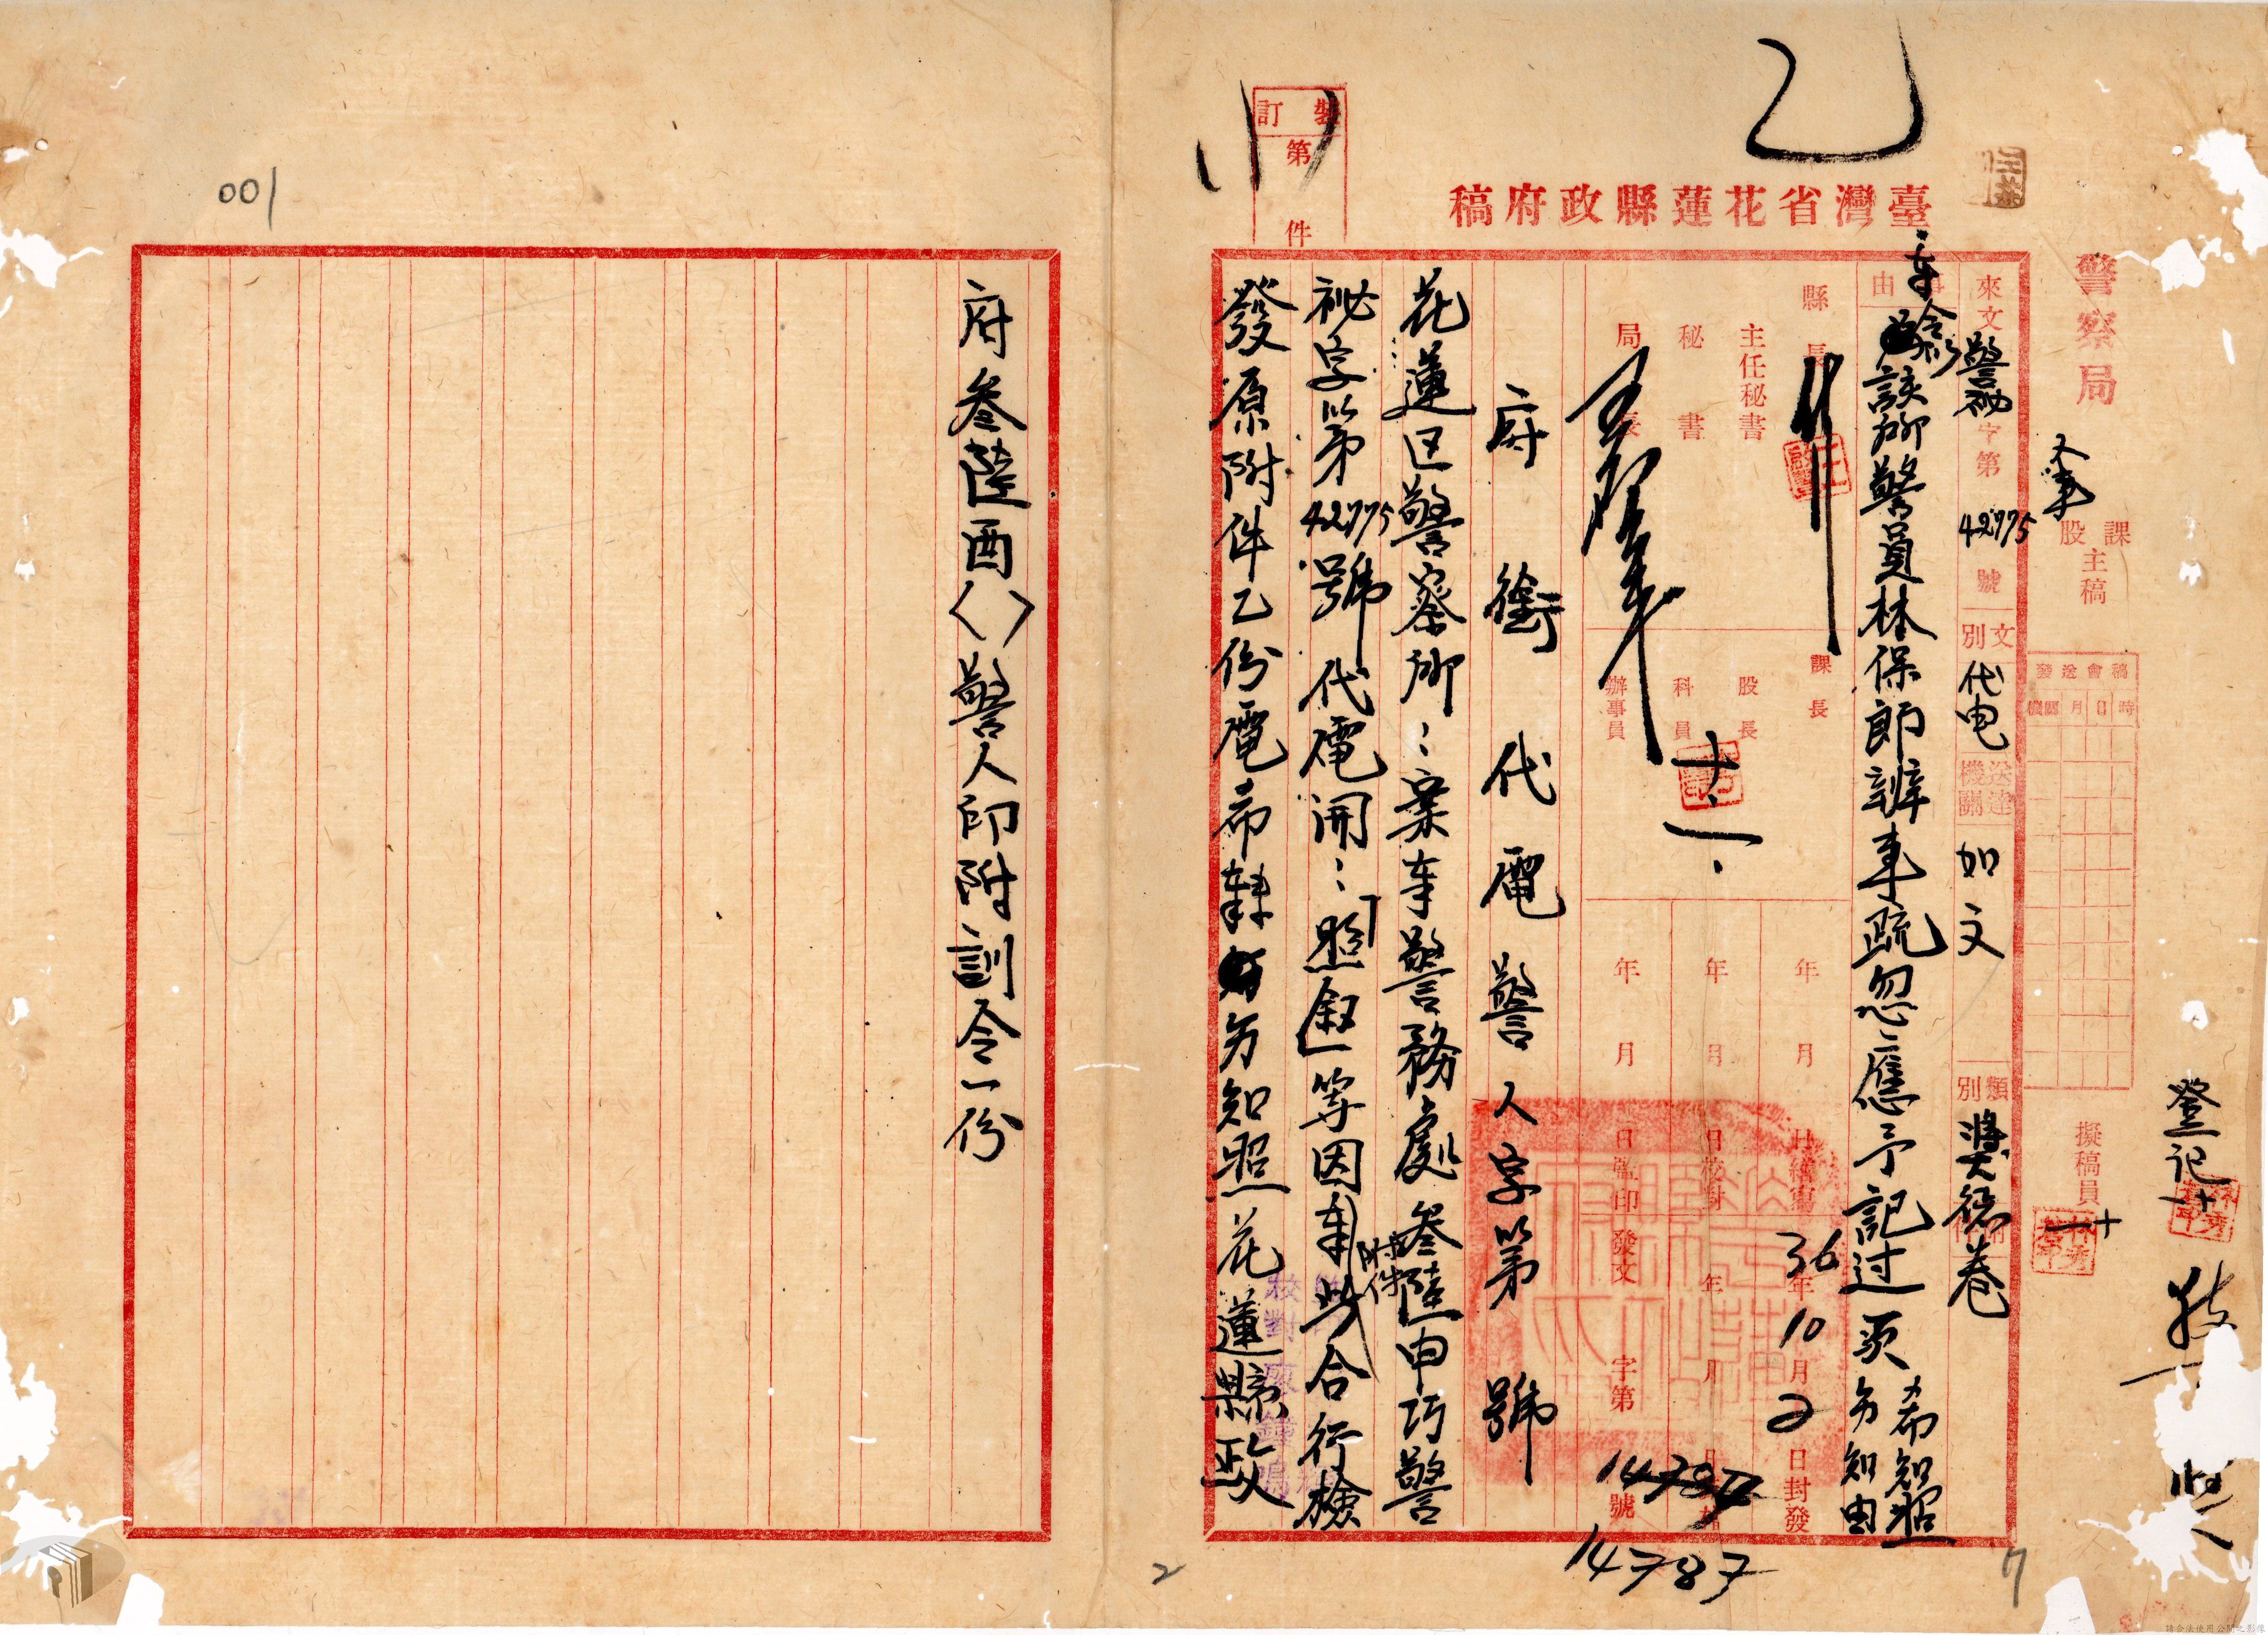 臺灣省花蓮縣政府稿
裝訂第 件
警察局
人事
課
股
主稿
稿會送發
時日月機關
擬稿員
十一
登記
十
來文 警祕字第42775號
文別 代电
送達機關 如文
類別 獎懲卷
事由
奉令以該所警員林保師辦事疏忽應予記过须希知照
另知由
縣長
主任秘書
秘書
局長
課長
股長
科員
辦事員
十、一、
年 月 日繕寫
年 月 日校對
年 月 日監印
36年10月2日封發
發文 字第14787號
14787
府銜代電警人字第 號
花蓮区警察所：案奉警務處叁陸申巧警
祕字第42775號代電開：「照叙」等因奉此附件合行檢
發原附件乙份電希轉另知照花蓮縣政
府叁陸酉〈〉警人印附訓令一份
001
2